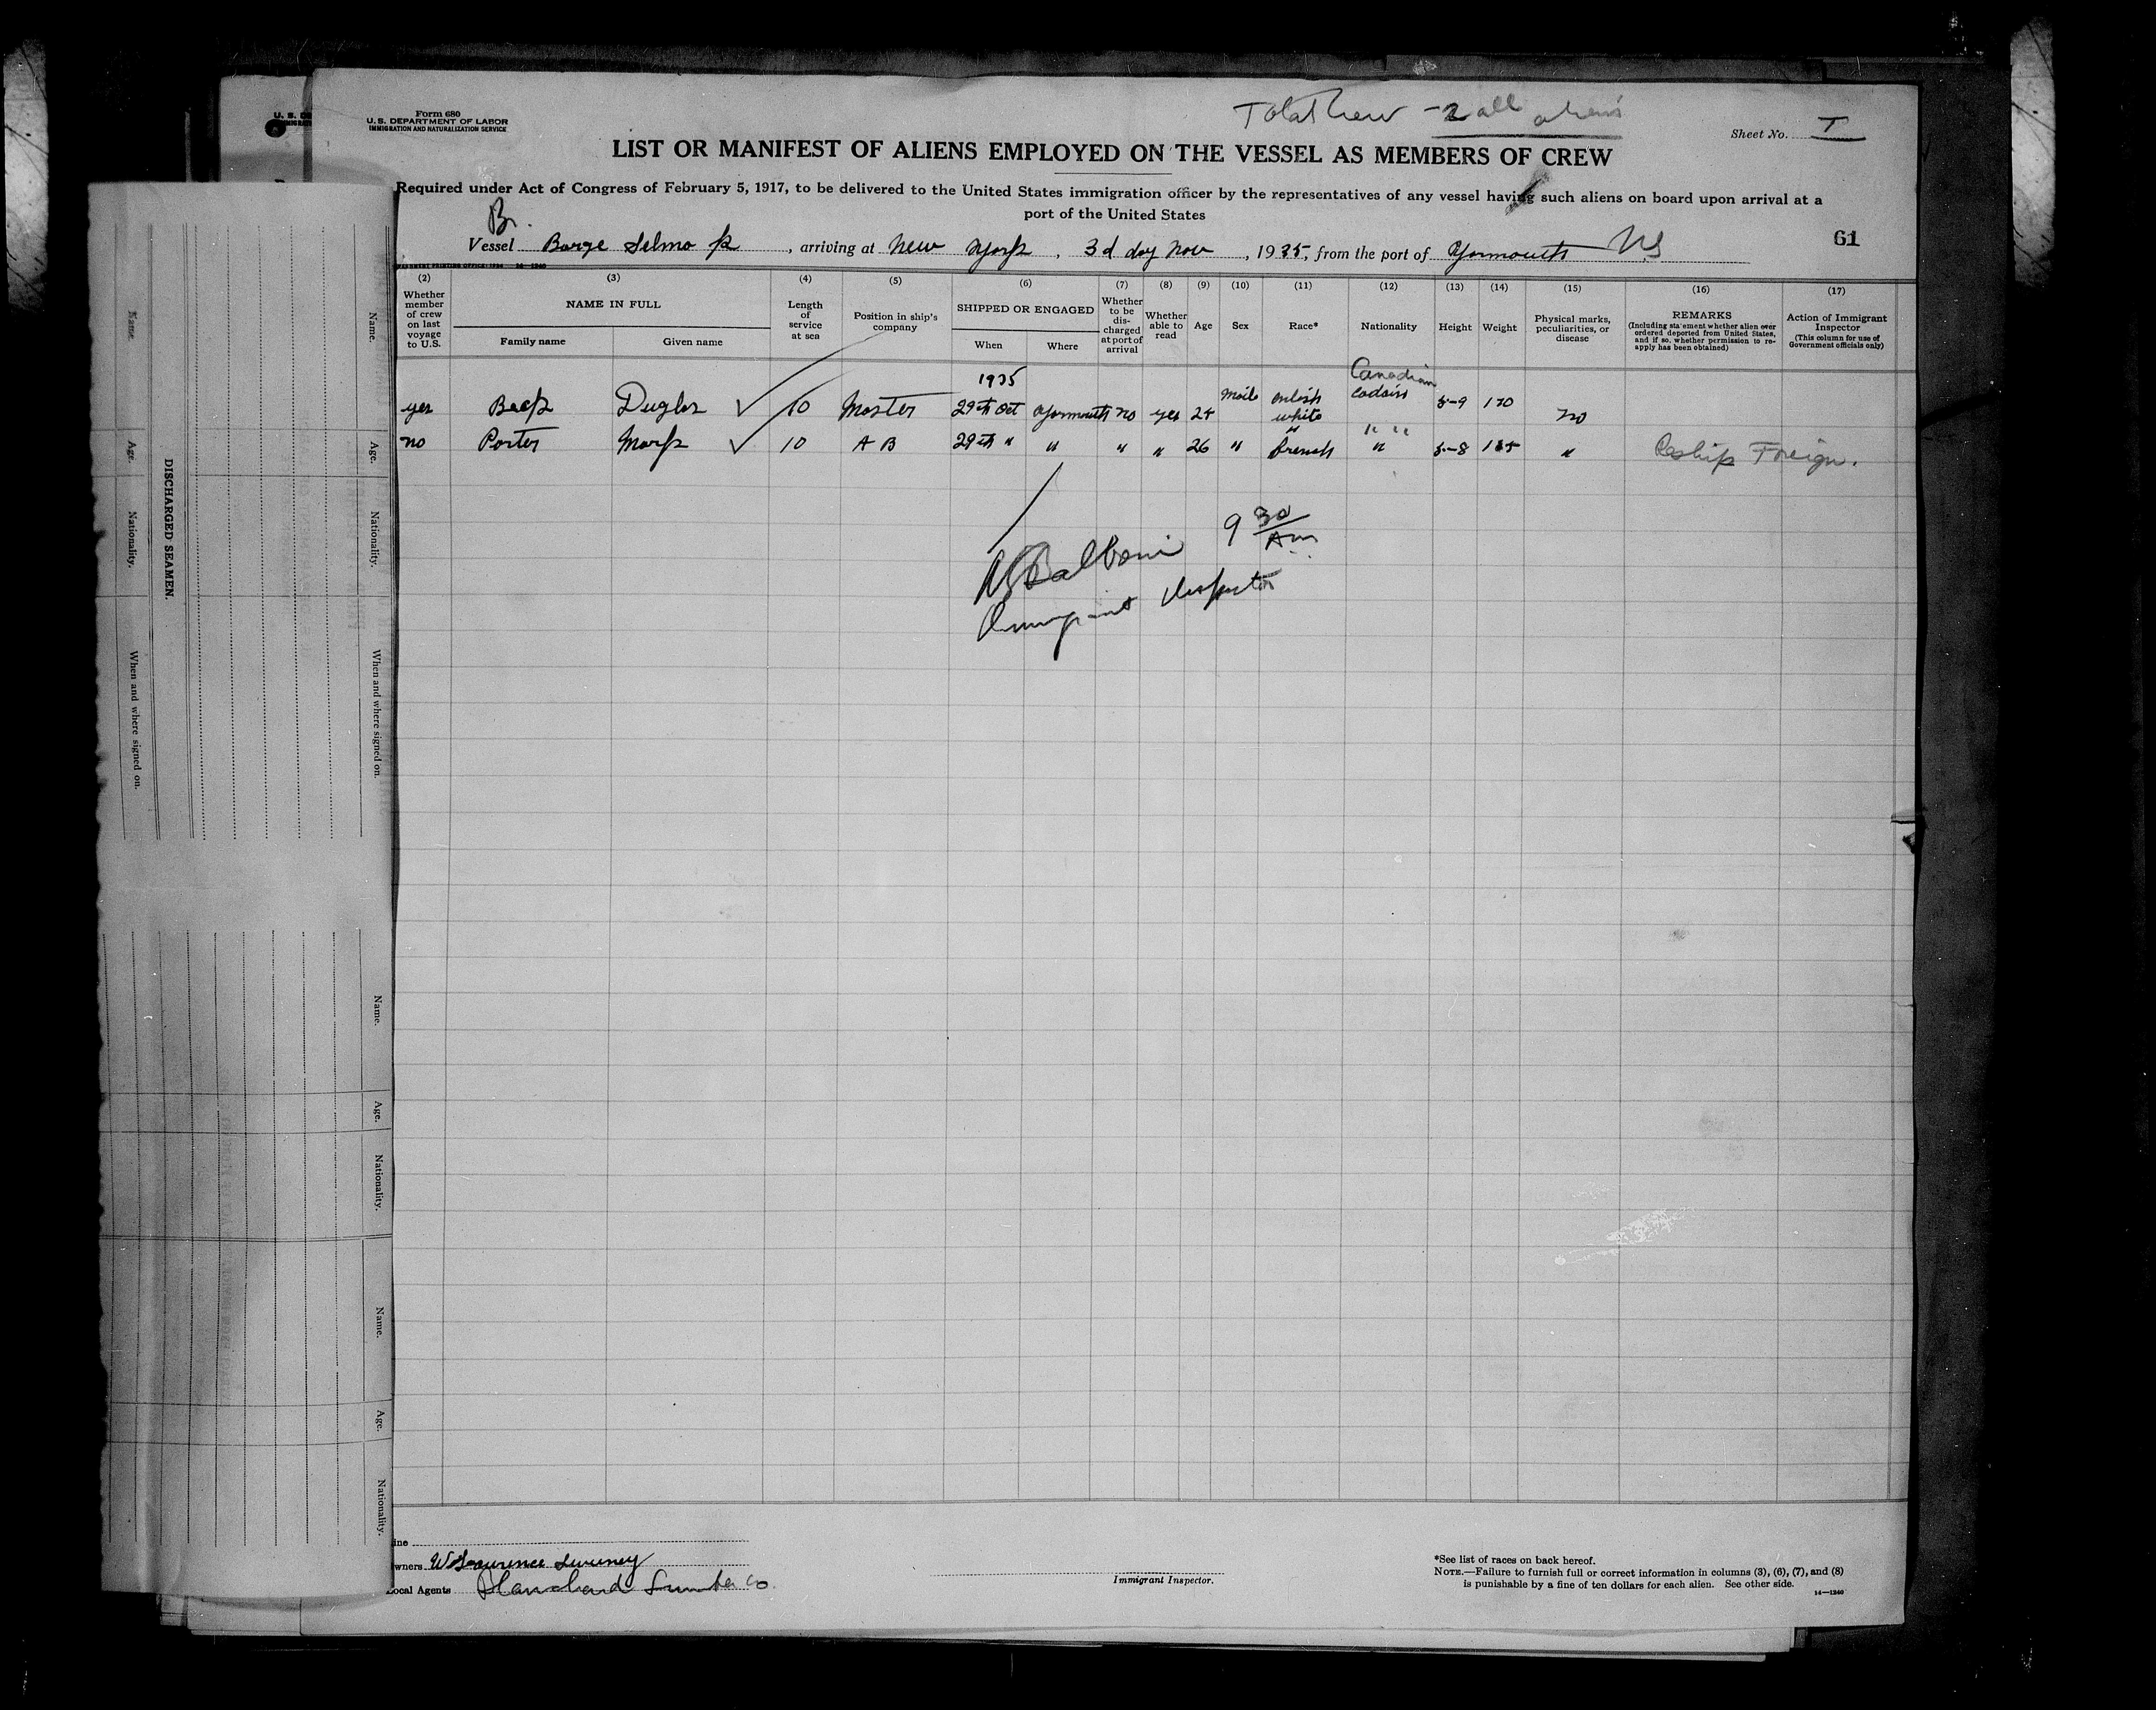 Form 680
U. S. DEPARTMENT OF LABOR
IMMIGRATION AND NATURALIZATION SERVICE
Total crew - 2 all aliens
Sheet No. I
LIST OR MANIFEST OF ALIENS EMPLOYED ON THE VESSEL AS MEMBERS OF CREW
Required under Act of Congress of February 5, 1917, to be delivered to the United States immigration officer by the representatives of any vessel having such aliens on board upon arrival at a
port of the United States
Br.
Vessel Barge Selma K, arriving at New York, 3d day Nov, 1935, from the port of Yarmouth N.S
61
(2) (3) (4) (5) (6) (7) (8) (9) (10) (11) (12) (13) (14) (15) (16) (17)
Whether member of crew on last voyage to U.S.
NAME IN FULL
Family name
Given name
Length of service at sea
Position in ship's company
SHIPPED OR ENGAGED
When
Where
Whether to be discharged at port of arrival
Whether able to read
Age
Sex
Race*
Nationality
Height
Weight
Physical marks, peculiarities, or disease
REMARKS
(Including statement whether alien ever ordered deported from United States, and if so, whether permission to re-apply has been obtained)
Action of Immigrant Inspector
(This column for use of Government officials only)
1935
Canadian
yes Duglas 10 Master 29th Oct Yarmouth no yes male white 5-9 no
no Porter 10 A B 29th " " " " 26 " french " 5-8 " Reship Foreign.
9 30 Am
Balboni
Immigrant Inspector
DISCHARGED SEAMEN.
Name.
Age.
Nationality.
When and where signed on.
Name.
Age.
Nationality.
When and where signed on.
Name.
Age.
Nationality.
Name.
Age.
Nationality.
ine
wners Laurence Sweeney
ocal Agents Blanchard Lumber Co.
Immigrant Inspector.
*See list of races on back hereof.
NOTE.—Failure to furnish full or correct information in columns (3), (6), (7), and (8)
is punishable by a fine of ten dollars for each alien. See other side.
14—1240